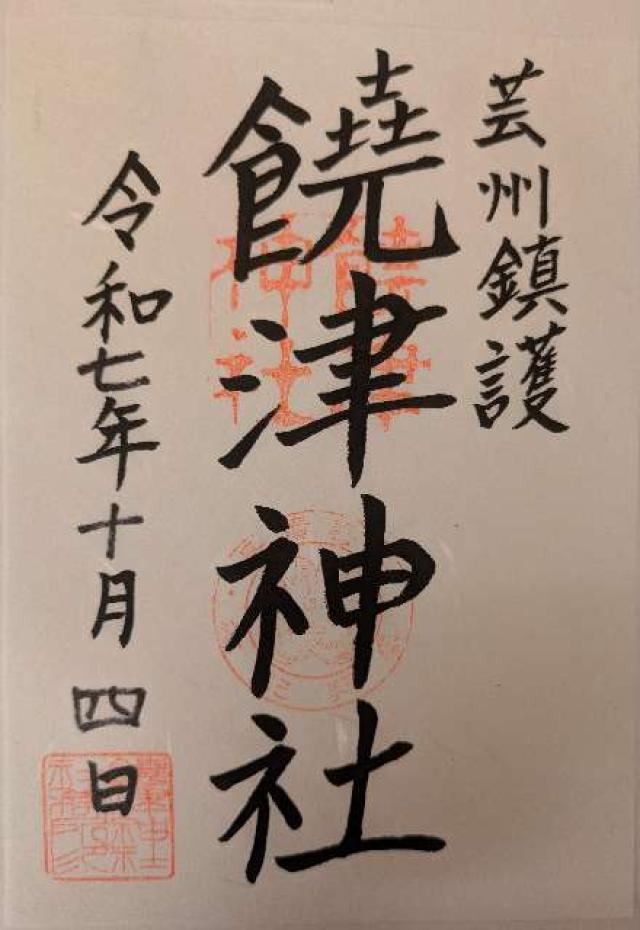 芸州鎮護
饒津神社
令和七年十月四日
饒津神社